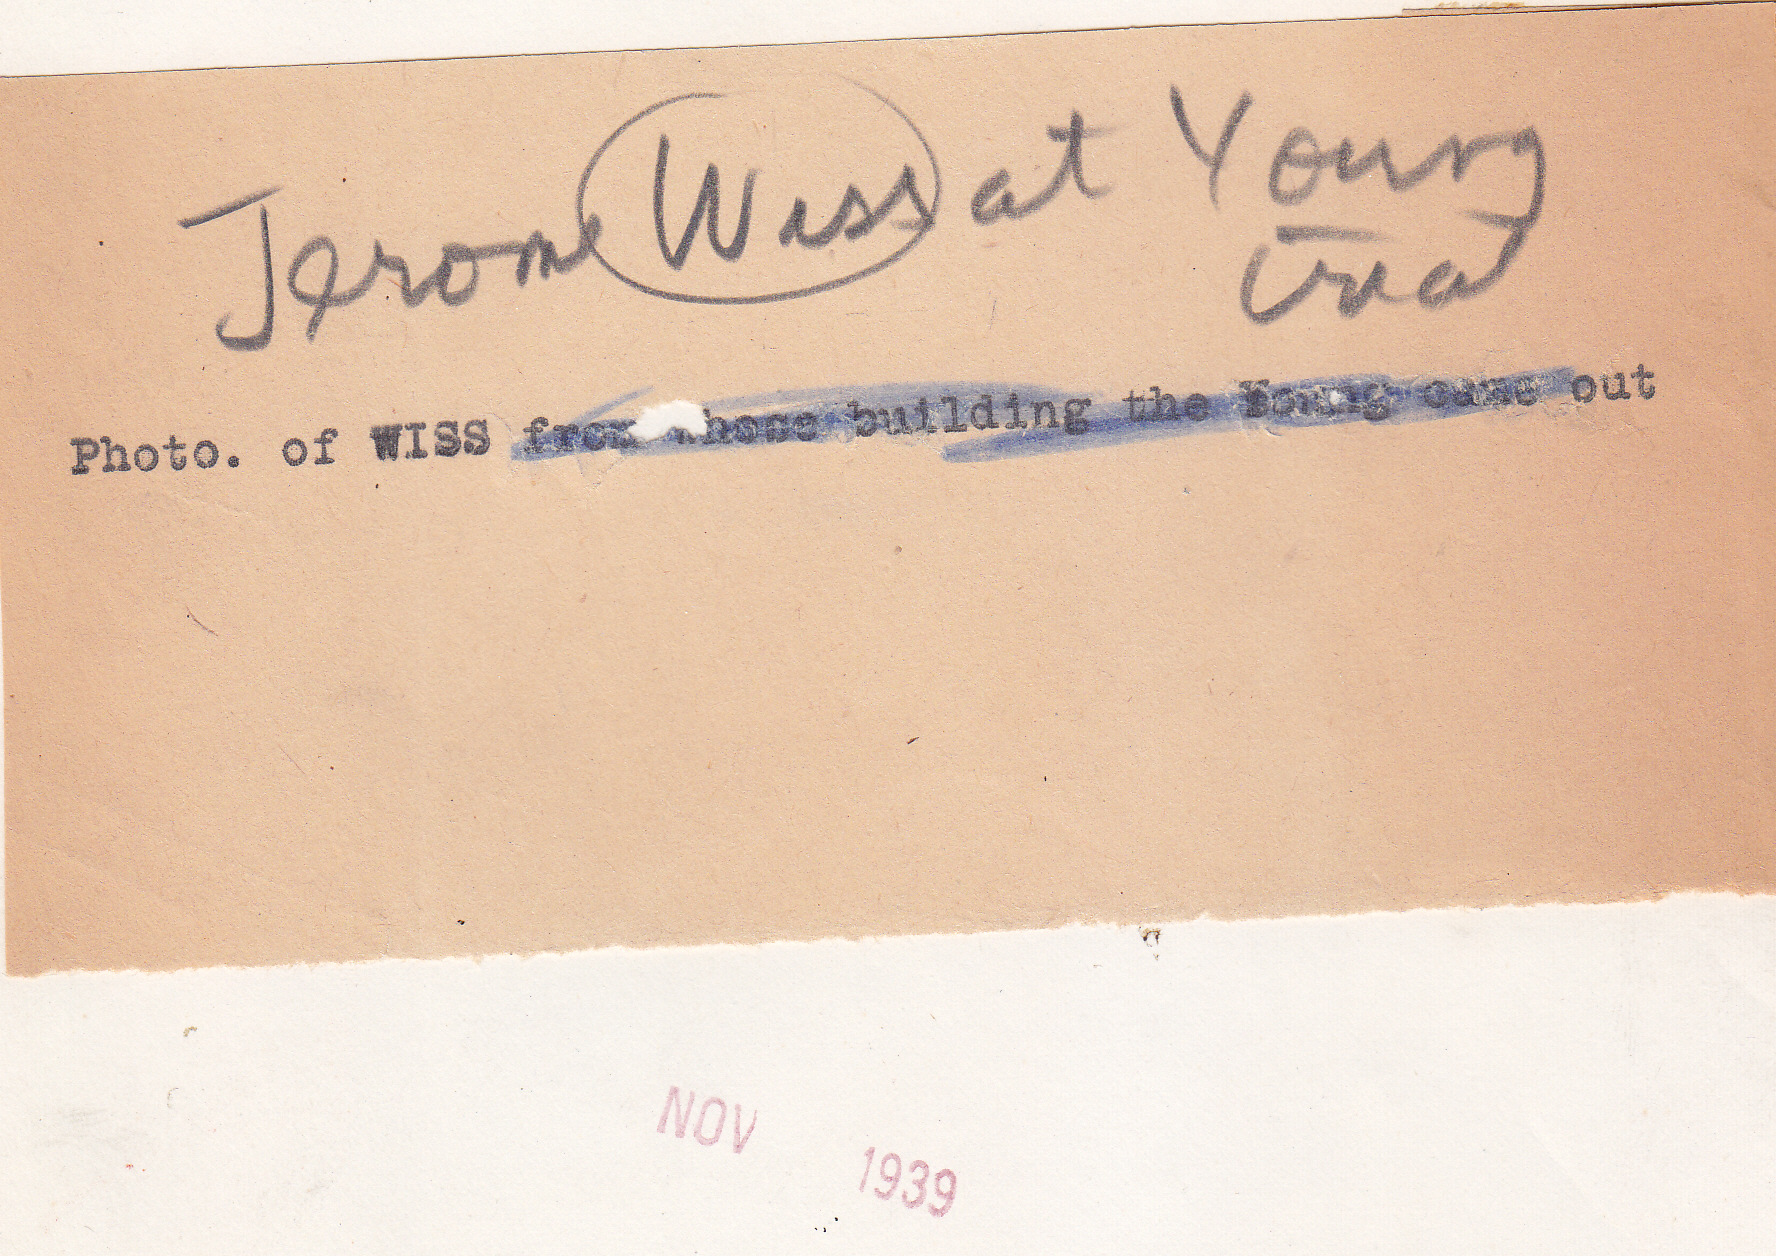 Jerome Wiss at Young
trial
Photo. of WISS from whose building the Young came out
NOV 1939